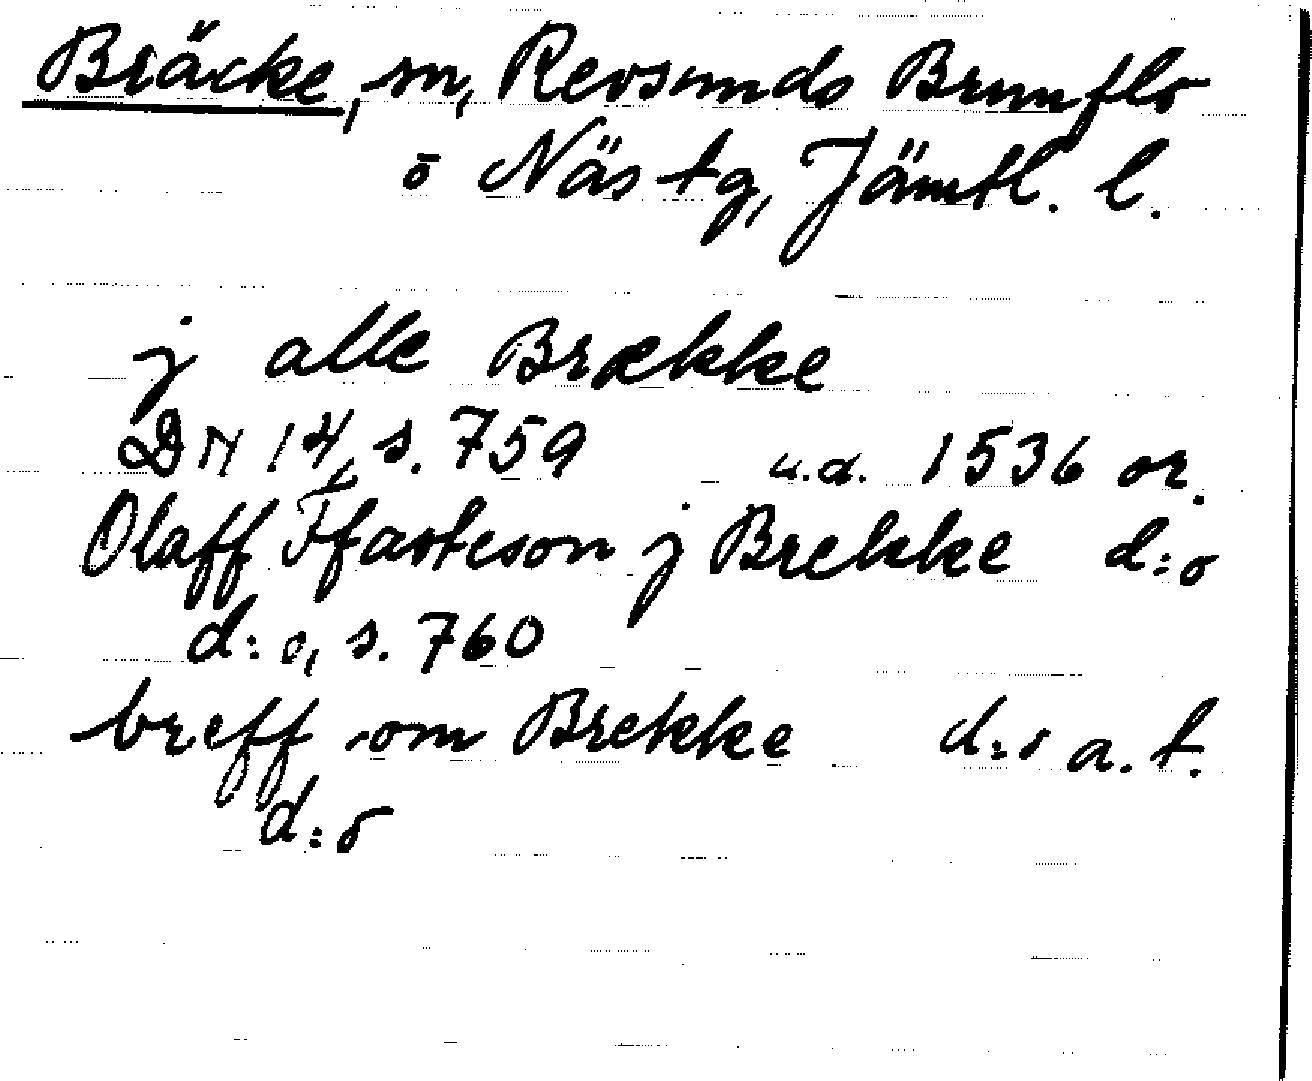 Bräcke, sn, Revsunds Brunflo
o Näs tg, Jämtl. l.
j alle Brække
DN 14, s. 759 u.d. 1536 or.
Olaff Ffasteson j Brekke d:o
d:o, s. 760
breff om Brekke d:o a.t.
d:o